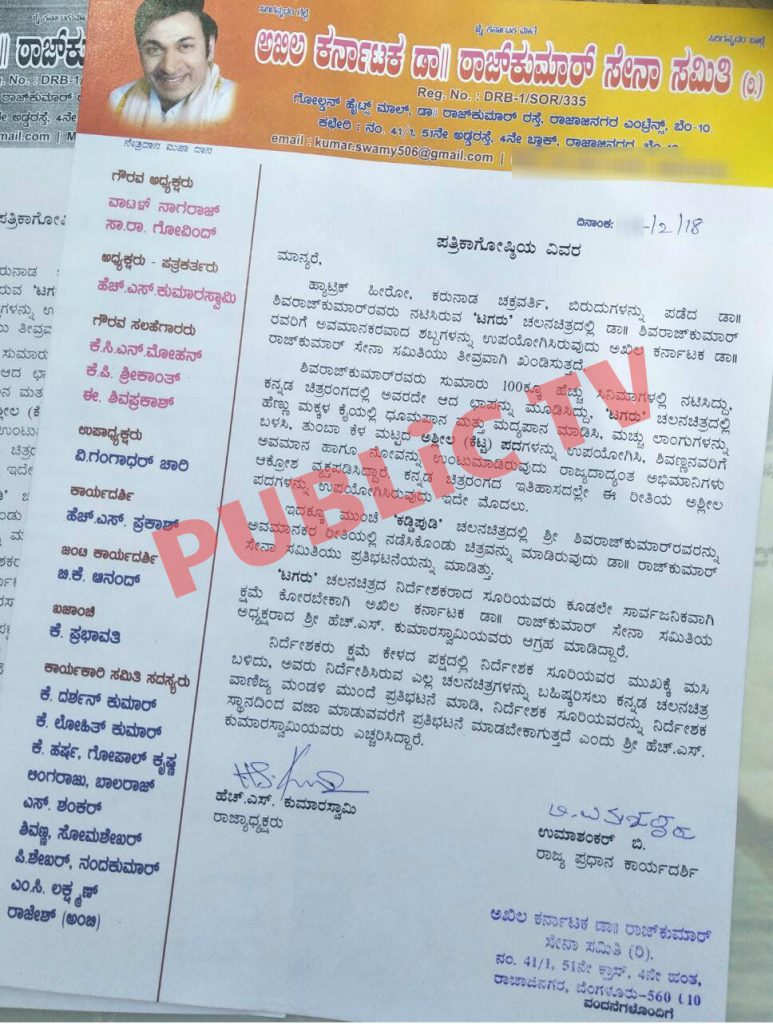 ಸಿರಿಗನ್ನಡಂ ಗೆಲ್ಗೆ
ಜೈ ಕರ್ನಾಟಕ ಮಾತೆ
ಸಿರಿಗನ್ನಡಂ ಬಾಳ್ಗೆ
ಅಖಿಲ ಕರ್ನಾಟಕ ಡಾ|| ರಾಜ್‌ಕುಮಾರ್ ಸೇನಾ ಸಮಿತಿ (ರಿ.)
Reg. No.: DRB-1/SOR/335
ಗೋಲ್ಡನ್ ಹೈಟ್ಸ್ ಮಾಲ್, ಡಾ|| ರಾಜ್‌ಕುಮಾರ್ ರಸ್ತೆ, ರಾಜಾಜಿನಗರ ಎಂಟ್ರೆನ್ಸ್, ಬೆಂ-10.
ಕಛೇರಿ: ನಂ. 41/1, 51ನೇ ಅಡ್ಡರಸ್ತೆ, 4ನೇ ಬ್ಲಾಕ್, ರಾಜಾಜಿನಗರ, ಬೆಂ-10.
email : kumar.swamy506@gmail.com |
ನೇತ್ರದಾನ ಮಹಾ ದಾನ
ಗೌರವ ಅಧ್ಯಕ್ಷರು
ವಾಟಾಳ್ ನಾಗರಾಜ್
ಸಾ.ರಾ. ಗೋವಿಂದ್
ಅಧ್ಯಕ್ಷರು - ಪತ್ರಕರ್ತರು
ಹೆಚ್.ಎಸ್.ಕುಮಾರಸ್ವಾಮಿ
ಗೌರವ ಸಲಹೆಗಾರರು
ಕೆ.ಸಿ.ಎನ್.ಮೋಹನ್
ಕೆ.ಪಿ. ಶ್ರೀಕಾಂತ್
ಈ. ಶಿವಪ್ರಕಾಶ್
ಉಪಾಧ್ಯಕ್ಷರು
ವಿ.ಗಂಗಾಧರ್ ಚಾರಿ
ಕಾರ್ಯದರ್ಶಿ
ಹೆಚ್.ಎಸ್. ಪ್ರಕಾಶ್
ಜಂಟಿ ಕಾರ್ಯದರ್ಶಿ
ಬಿ.ಕೆ. ಆನಂದ್
ಖಜಾಂಚಿ
ಕೆ. ಪ್ರಭಾವತಿ
ಕಾರ್ಯಕಾರಿ ಸಮಿತಿ ಸದಸ್ಯರು
ಕೆ. ದರ್ಶನ್ ಕುಮಾರ್
ಕೆ. ಲೋಹಿತ್ ಕುಮಾರ್
ಕೆ. ಹರ್ಷ, ಗೋಪಾಲ್ ಕೃಷ್ಣ
ಲಿಂಗರಾಜು, ಬಾಲರಾಜ್
ಎಸ್. ಶಂಕರ್
ಶಿವಣ್ಣ, ಸೋಮಶೇಖರ್
ಪಿ.ಶೇಖರ್, ನಂದಕುಮಾರ್
ಎಂ.ಸಿ. ಲಕ್ಷ್ಮಣ್
ರಾಜೇಶ್ (ಅಂಬಿ)
ದಿನಾಂಕ: -/2/18
ಪತ್ರಿಕಾಗೋಷ್ಠಿಯ ವಿವರ
ಮಾನ್ಯರೆ,
ಹ್ಯಾಟ್ರಿಕ್ ಹೀರೋ, ಕರುನಾಡ ಚಕ್ರವರ್ತಿ, ಬಿರುದುಗಳನ್ನು ಪಡೆದ ಡಾ||
ಶಿವರಾಜ್‌ಕುಮಾರ್‌ರವರು ನಟಿಸಿರುವ 'ಟಗರು' ಚಲನಚಿತ್ರದಲ್ಲಿ ಡಾ|| ಶಿವರಾಜ್‌ಕುಮಾರ್
ರವರಿಗೆ ಅವಮಾನಕರವಾದ ಶಬ್ದಗಳನ್ನು ಉಪಯೋಗಿಸಿರುವುದು ಅಖಿಲ ಕರ್ನಾಟಕ ಡಾ||
ರಾಜ್‌ಕುಮಾರ್ ಸೇನಾ ಸಮಿತಿಯು ತೀವ್ರವಾಗಿ ಖಂಡಿಸುತ್ತದೆ.
ಶಿವರಾಜ್‌ಕುಮಾರ್‌ರವರು ಸುಮಾರು 100ಕ್ಕೂ ಹೆಚ್ಚು ಸಿನಿಮಾಗಳಲ್ಲಿ ನಟಿಸಿದ್ದು,
ಕನ್ನಡ ಚಿತ್ರರಂಗದಲ್ಲಿ ಅವರದೇ ಆದ ಛಾಪನ್ನು ಮೂಡಿಸಿದ್ದು, 'ಟಗರು' ಚಲನಚಿತ್ರದಲ್ಲಿ
ಹೆಣ್ಣು ಮಕ್ಕಳ ಕೈಯಲ್ಲಿ ಧೂಮಪಾನ ಮತ್ತು ಮದ್ಯಪಾನ ಮಾಡಿಸಿ, ಮಚ್ಚು ಲಾಂಗುಗಳನ್ನು
ಬಳಸಿ, ತುಂಬಾ ಕೆಳ ಮಟ್ಟದ ಅಶ್ಲೀಲ (ಕೆಟ್ಟ) ಪದಗಳನ್ನು ಉಪಯೋಗಿಸಿ, ಶಿವಣ್ಣನವರಿಗೆ
ಅವಮಾನ ಹಾಗೂ ನೋವನ್ನು ಉಂಟುಮಾಡಿರುವುದು ರಾಜ್ಯದಾದ್ಯಂತ ಅಭಿಮಾನಿಗಳು
ಆಕ್ರೋಶ ವ್ಯಕ್ತಪಡಿಸಿದ್ದಾರೆ. ಕನ್ನಡ ಚಿತ್ರರಂಗದ ಇತಿಹಾಸದಲ್ಲೇ ಈ ರೀತಿಯ ಅಶ್ಲೀಲ
ಪದಗಳನ್ನು ಉಪಯೋಗಿಸಿರುವುದು ಇದೇ ಮೊದಲು.
ಇದಕ್ಕೂ ಮುಂಚೆ 'ಕಡ್ಡಿಪುಡಿ' ಚಲನಚಿತ್ರದಲ್ಲಿ ಶ್ರೀ ಶಿವರಾಜ್‌ಕುಮಾರ್‌ರವರನ್ನು
ಅವಮಾನಕರ ರೀತಿಯಲ್ಲಿ ನಡೆಸಿಕೊಂಡು ಚಿತ್ರವನ್ನು ಮಾಡಿರುವುದು ಡಾ|| ರಾಜ್‌ಕುಮಾರ್
ಸೇನಾ ಸಮಿತಿಯು ಪ್ರತಿಭಟನೆಯನ್ನು ಮಾಡಿತ್ತು.
'ಟಗರು' ಚಲನಚಿತ್ರದ ನಿರ್ದೇಶಕರಾದ ಸೂರಿಯವರು ಕೂಡಲೇ ಸಾರ್ವಜನಿಕವಾಗಿ
ಕ್ಷಮೆ ಕೋರಬೇಕಾಗಿ ಅಖಿಲ ಕರ್ನಾಟಕ ಡಾ|| ರಾಜ್‌ಕುಮಾರ್ ಸೇನಾ ಸಮಿತಿಯ
ಅಧ್ಯಕ್ಷರಾದ ಶ್ರೀ ಹೆಚ್.ಎಸ್. ಕುಮಾರಸ್ವಾಮಿಯವರು ಆಗ್ರಹ ಮಾಡಿದ್ದಾರೆ.
ನಿರ್ದೇಶಕರು ಕ್ಷಮೆ ಕೇಳದ ಪಕ್ಷದಲ್ಲಿ ನಿರ್ದೇಶಕ ಸೂರಿಯವರ ಮುಖಕ್ಕೆ ಮಸಿ
ಬಳಿದು, ಅವರು ನಿರ್ದೇಶಿಸಿರುವ ಎಲ್ಲ ಚಲನಚಿತ್ರಗಳನ್ನು ಬಹಿಷ್ಕರಿಸಲು ಕನ್ನಡ ಚಲನಚಿತ್ರ
ವಾಣಿಜ್ಯ ಮಂಡಳಿ ಮುಂದೆ ಪ್ರತಿಭಟನೆ ಮಾಡಿ, ನಿರ್ದೇಶಕ ಸೂರಿಯವರನ್ನು ನಿರ್ದೇಶಕ
ಸ್ಥಾನದಿಂದ ವಜಾ ಮಾಡುವವರೆಗೆ ಪ್ರತಿಭಟನೆ ಮಾಡಬೇಕಾಗುತ್ತದೆ ಎಂದು ಶ್ರೀ ಹೆಚ್.ಎಸ್.
ಕುಮಾರಸ್ವಾಮಿಯವರು ಎಚ್ಚರಿಸಿದ್ದಾರೆ.
ಹೆಚ್.ಎಸ್. ಕುಮಾರಸ್ವಾಮಿ
ರಾಜ್ಯಾಧ್ಯಕ್ಷರು
ಉಮಾಶಂಕರ್ ಬಿ.
ರಾಜ್ಯ ಪ್ರಧಾನ ಕಾರ್ಯದರ್ಶಿ
ಅಖಿಲ ಕರ್ನಾಟಕ ಡಾ|| ರಾಜ್‌ಕುಮಾರ್
ಸೇನಾ ಸಮಿತಿ (ರಿ).
ನಂ. 41/1, 51ನೇ ಕ್ರಾಸ್, 4ನೇ ಹಂತ,
ರಾಜಾಜಿನಗರ, ಬೆಂಗಳೂರು-560 010
ವಂದನೆಗಳೊಂದಿಗೆ
PUBLiC TV